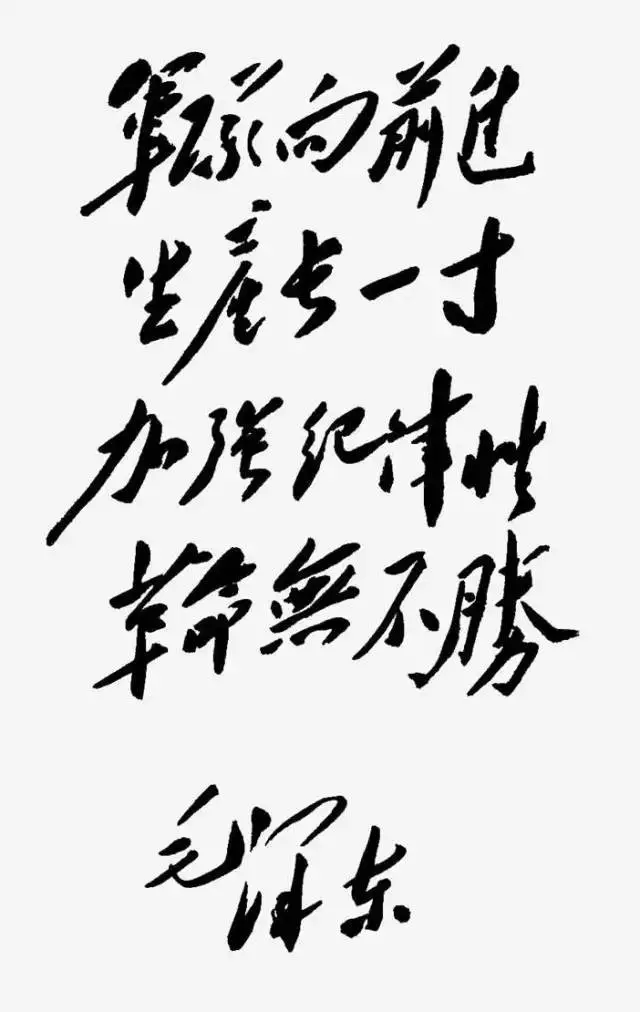 軍隊向前進
生産长一寸
加强纪律性
革命無不勝
毛泽东